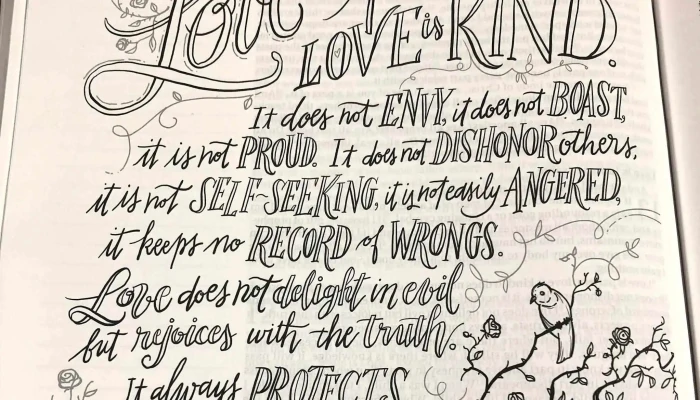 Love
LOVE is KIND.
It does not ENVY, it does not BOAST,
it is not PROUD. It does not DISHONOR others,
it is not SELF-SEEKING, it is not easily ANGERED,
it keeps no RECORD of WRONGS.
Love does not delight in evil
but rejoices with the truth.
It always PROTECTS